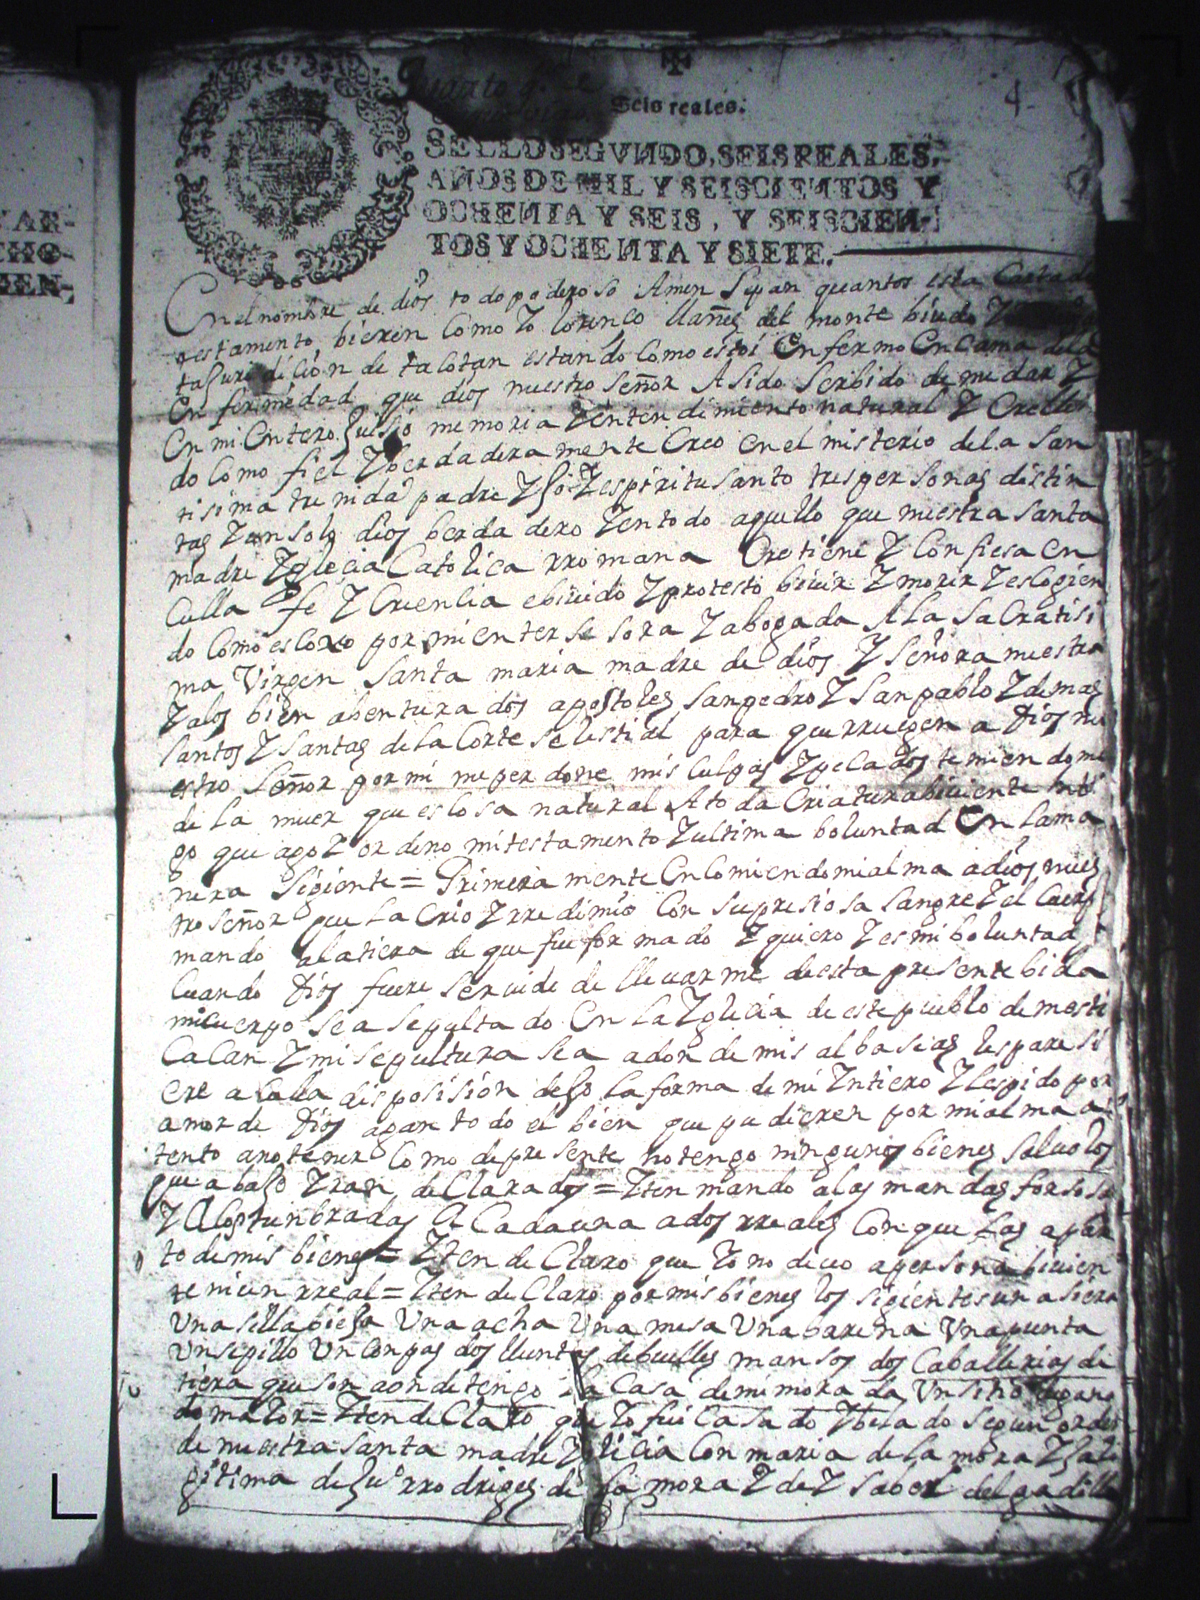 4
Seis reales.
SELLO SEGVNDO, SEIS REALES,
AÑOS DE MIL Y SEISCIENTOS Y
OCHENTA Y SEIS, Y SEISCIEN-
TOS Y OCHENTA Y SIETE.
En el nombre de dios todo poderoso Amen Sepan quantos esta Carta de
testamento bieren Como Yo lorenco llañes del monte biudo
juridicion de tacotan estando Como estoi Enfermo En Cama de la
Enfermedad que dios nuestro señor A sido Serbido de me dar Y
En mi Entero Juisio memoria Y entendimiento natural Y Crellen
do Como fiel Y berdaderamente Creo en el misterio de la San
tisima trenida padre Y Jo Y espiritu santo tres personas distin
tas Y un solo dios berdadero Y en todo aquello que nuestra santa
madre Yglecia Catolica rromana Cre tiene Y Confiesa en
Culla fe Y Crencia e biuido Y protesto biuir Y morir Y escogien
do Como escoxo por mi entersesora Y abogada A La Sacratisi
ma Virgen Santa maria madre de dios Y señora nuestra
Y a los bien abenturados apostoles san pedro Y san pablo Y demas
santos Y santas de la Corte selestial para que rrueguen a Dios nu
estro Señor por mi me perdone mis Culpas Y pecados temiendome
de la muer que es Cosa natural A toda Criatura biuiente
go que ago Y ordeno mi testamento Y ultima boluntad En la ma
nera Sigiente = Primera mente Encomiendo mi alma a dios nues
tro señor que la Crio Y rredimio Con su presiosa sangre Y el Cuerp
mando a la tiera de que fue formado Y quiero Y es mi boluntad
Cuando Dios fuere seruido de lleuarme de esta presente bida
mi cuerpo sea sepultado En la Yglecia de este pueblo de mesti
CaCan Y mi sepultura sea adonde mis albaseas les paresi
ere a Culla disposision dejo la forma de mi Yntiero Y les pido por
amor de Dios agan todo el bien que pudieren por mi alma a
tento a no tener Como de presente no tengo ningunos bienes saluo los
que abajo Yran deClarados = Yten mando a las mandas forsosas
Y acostunbradas A Cada una a dos rreales Con que las apar
to de mis bienes = Yten deClaro que Yo no deuo a persona biuien
te ni un rreal = Yten deClaro por mis bienes los sigientes una siera
Una silla bieja Una acha Una mesa Una barena Una punta
Un sepillo Un Conpas dos lluntas de buelles mansos dos Caballerias de
tiera que son aonde tengo la Casa de mi morada Un sitio de gana
do mallor = Yten deClaro que Yo fui Casado Y belado segun orden
de nuestra santa madre Yglecia Con maria de la mora Y ja le
gitima de Ju° rrodriges de la mora Y de Ysabel delgadillo